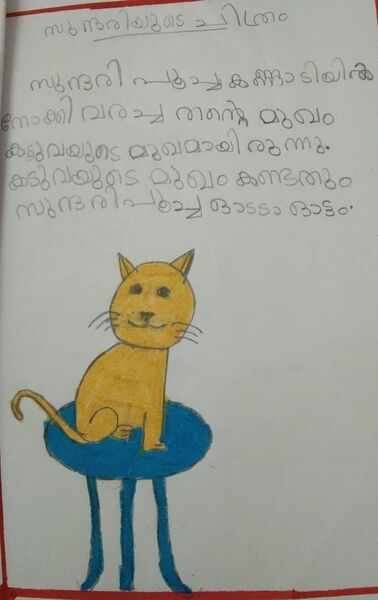 സുന്ദരിയുടെ ചിത്രം
സുന്ദരി പൂച്ച കണ്ണാടിയിൽ
നോക്കി വരച്ച തന്റെ മുഖം
കടുവയുടെ മുഖമായിരുന്നു.
കടുവയുടെ മുഖം കണ്ടതും
സുന്ദരിപൂച്ച ഓടടാ ഓട്ടം.